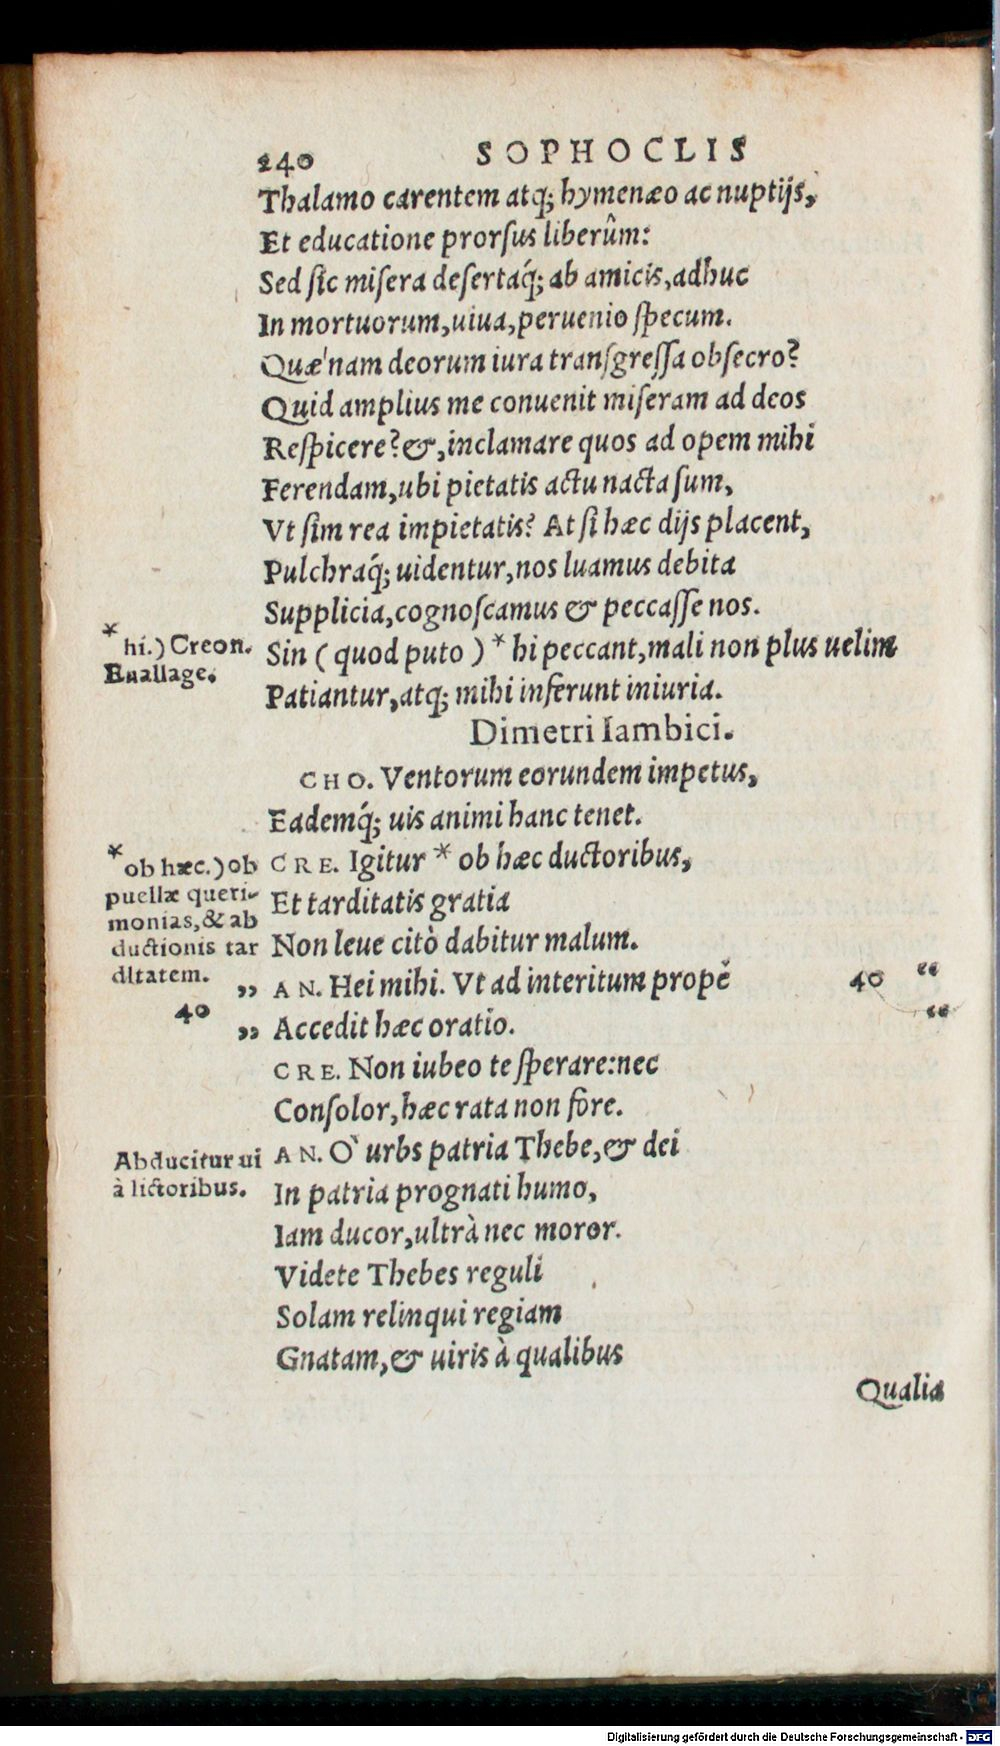 240 SOPHOCLIS
Thalamo carentem atq; hymenæo ac nuptijs,
Et educatione prorſus liberûm:
Sed ſic miſera deſertaq́; ab amicis,adhuc
In mortuorum,uiua,peruenio ſpecum.
Quæ'nam deorum iura tranſgreſſa obſecro?
Quid amplius me conuenit miſeram ad deos
Reſpicere?&,inclamare quos ad opem mihi
Ferendam,ubi pietatis actu nacta ſum,
Vt ſim rea impietatis? At ſi hæc dijs placent,
Pulchraq́; uidentur,nos luamus debita
Supplicia,cognoſcamus & peccaſſe nos.
* hi.) Creon.
Enallage.
Sin ( quod puto ) * hi peccant,mali non plus uelim
Patiantur,atq; mihi inferunt iniuria.
Dimetri Iambici.
CHO. Ventorum eorundem impetus,
Eademq́; uis animi hanc tenet.
* ob hæc.) ob
puellæ queri-
monias,& ab
ductionis tar
ditatem.
CRE. Igitur * ob hæc ductoribus,
Et tarditatis gratia
Non leue citò dabitur malum.
„ AN. Hei mihi. Vt ad interitum propè 40 “
40
„ Accedit hæc oratio. “
CRE. Non iubeo te ſperare:nec
Conſolor,hæc rata non fore.
Abducitur ui
à lictoribus.
AN. O` urbs patria Thebe,& dei
In patria prognati humo,
Iam ducor,ultrà nec moror.
Videte Thebes reguli
Solam relinqui regiam
Gnatam,& uiris à qualibus
Qualia
Digitalisierung gefördert durch die Deutsche Forschungsgemeinschaft - DFG